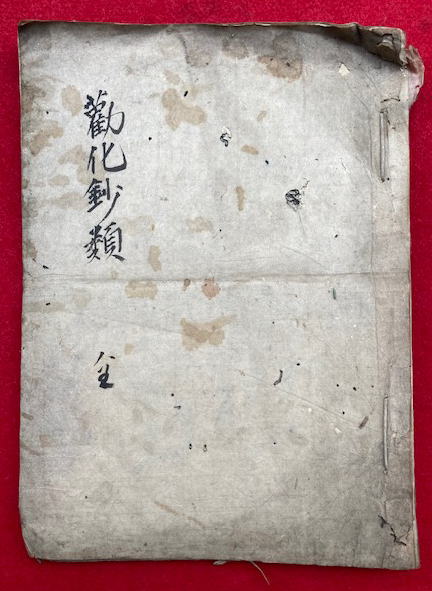 勸化鈔類
全